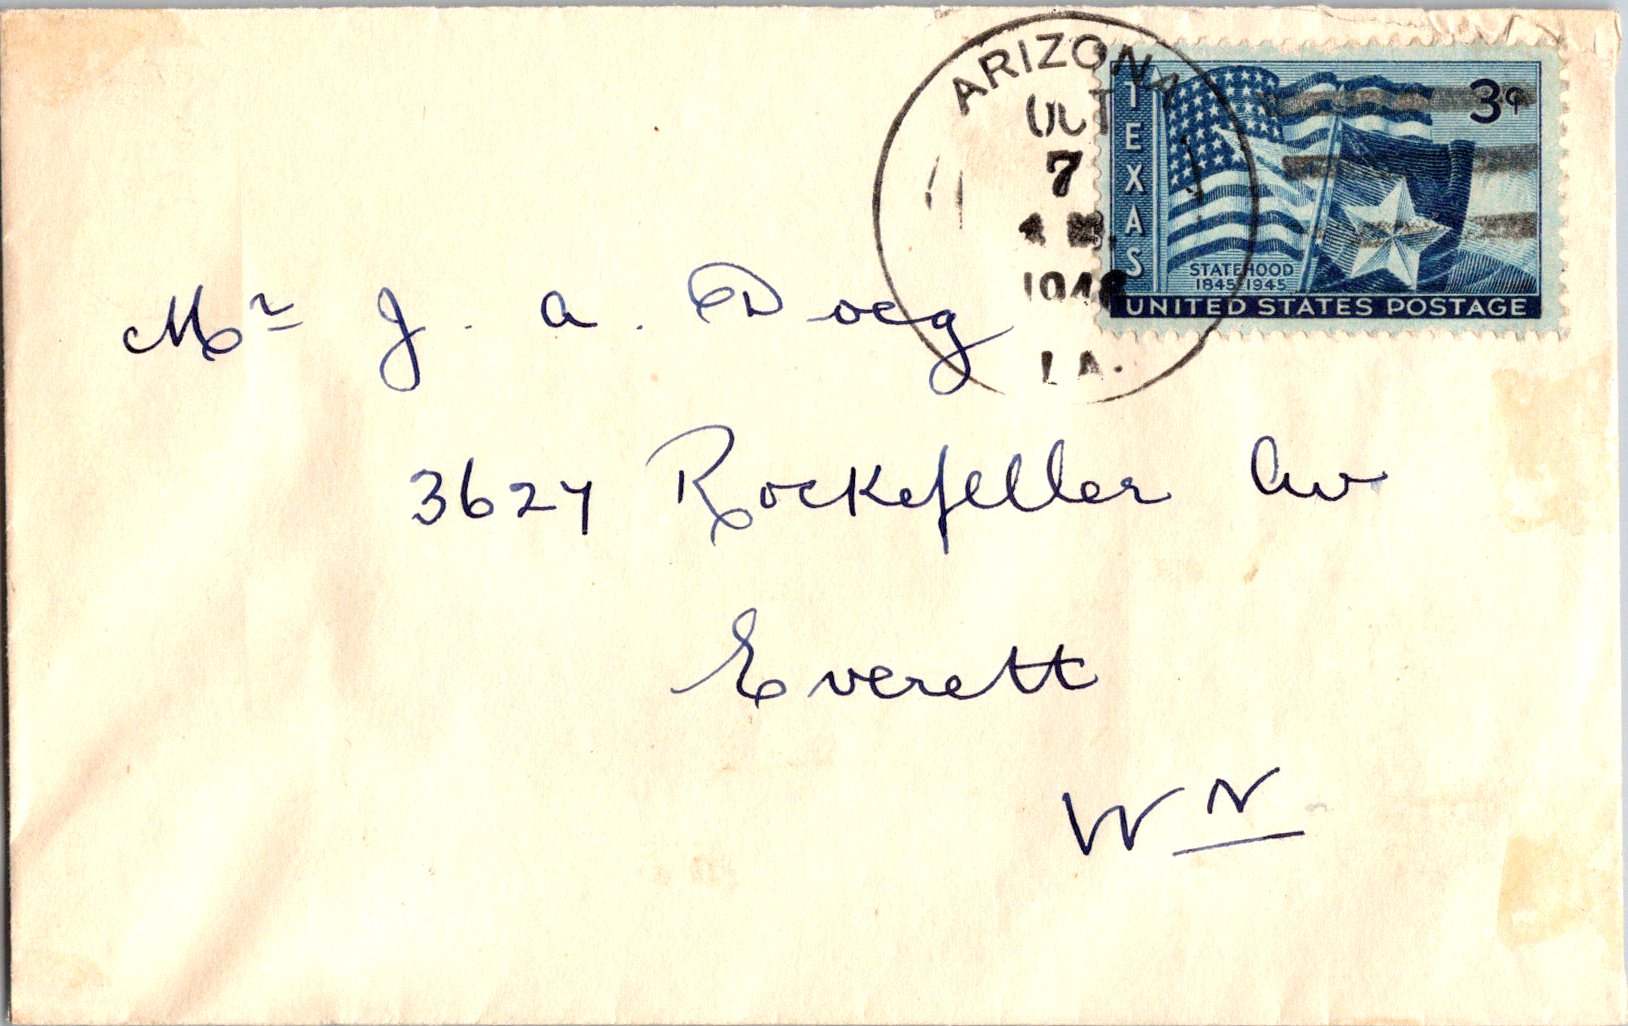 ARIZONA
OCT
7
LA.
TEXAS
3¢
STATEHOOD
1845 1945
UNITED STATES POSTAGE
Mr J. A. Doeg
3627 Rockefeller Av
Everett
Wn